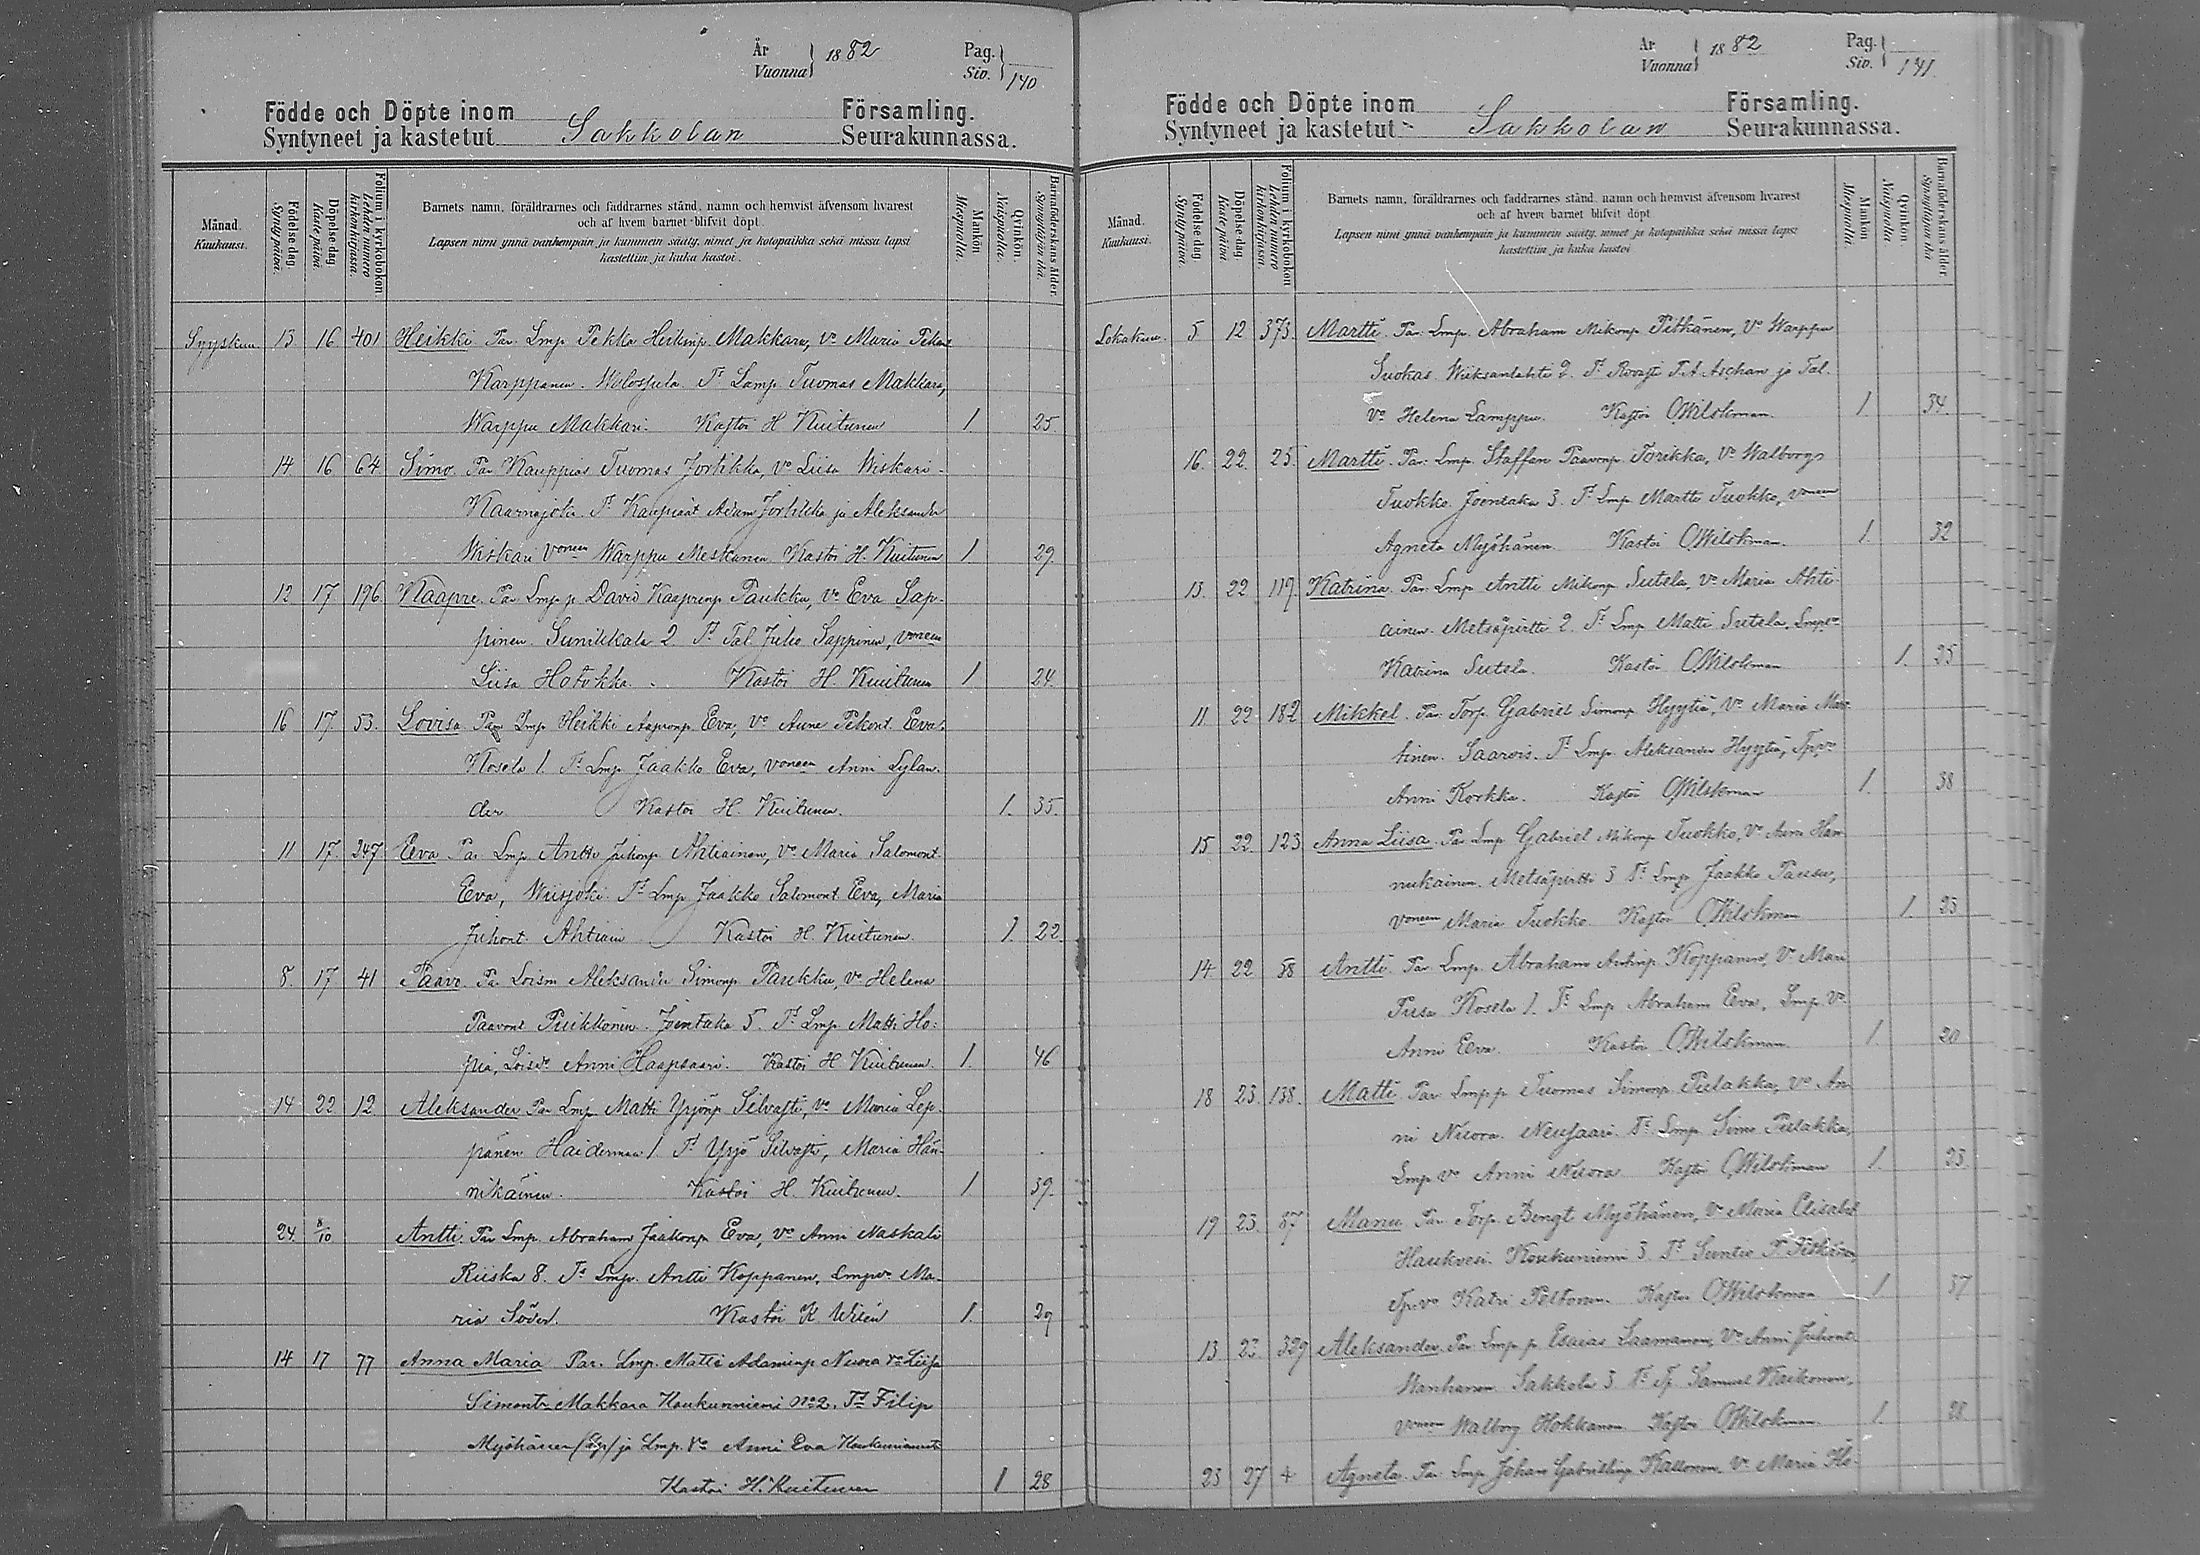 År
Vuonna } 1882
Pag.
Siv. } 140
Födde och Döpte inom Församling.
Syntyneet ja kastetut Sakkolan Seurakunnassa.
Månad.
Kuukausi.
Födelse dag
Syntypäivä.
Döpelse dag
Kaste päivä
Folium i kyrkoboken.
Lehden numero kirkonkirjassa.
Barnets namn, föräldrarnes och faddrarnes stånd, namn och hemvist äfvensom hvarest
och af hvem barnet blifvit döpt.
Lapsen nimi ynnä vanhempain ja kummein sääty, nimet ja kotopaikka sekä missä lapsi
kastettiin ja kuka kastoi.
Mankön
Miespuolia.
Qvinkön.
Naispuolia.
Barnaföderskans ålder.
Synnyttäjän ikä.
Syyskuu 13 16 401 Heikki Par. Lmp. Pekka Heikinp. Makkara, Vo Maria Pekant
Karppanen. Wilospela. Tt Lamp. Tuomas Makkara,
Warppu Makkari. Kastoi H Kuitunen 1. 25.
14 16 64 Simo. Par Kauppias Tuomas Jortikka, Vo Liisa Wiskari-
Kaarnajoki. Tt Kaupiaat Adam Jortikka ja Aleksander
Wiskari Voneen Warppu Meskanen Kastoi H. Kuitunen 1 29.
12 17 196 Kaapre. Par Lmp.p. David Kaaprenp Paukku, Vo Eva Sap-
pinen. Sunikkala 2. Tt Tal. Juho Sappinen, Voneen
Liisa Hotokka. Kastoi H. Kuitunen 1 24.
16 17 53. Lovisa Par Lmp Heikki Aapronp. Eva, Vo Aune Pekant. Eva.
Kosela 1. Tt Lmp. Jaakko Eva, Voneen Anni Sylan-
der Kastoi H. Kuitunen. 1. 35.
11 17. 247 Eeva Par Lmp. Antti Juhonp Ahtiainen, Vo Maria Salomont.
Eva, Wiisjoki. Tt Lmp Jaakko Salomont Eva, Maria
Juhont. Ahtiain Kastoi H. Kuitunen. 1. 22.
8. 17 41 Paavo. Pa Loism Aleksander Simonp Paukku, Vo Helena
Paavont Puikkonen. Joentaka 5. Tt Lmp. Matti Ho-
pia, Loisvo Anni Haapsaari. Kastoi H Kuitunen. 1. 46
14 22 12 Aleksander Par Lmp Matti Yrjönp Silvasti, Vo Maria Lep-
pänen Haiderman 1. Tt Yrjö Silvasti, Maria Hän-
nikäinen. Kastoi H. Kuitunen. 1 39.
24 8/10 Antti. Par Lmp. Abraham Jaakonp Eva, Vo Anni Naskali
Riiska 8. Tt Lmp. Antti Koppanen, Lmpvo Ma-
ria Söder. Kastoi K Wilén 1. 29
14 17 77 Anna Maria Par. Lmp. Matti Adaminp Nuora Vo Liisa
Simontr Makkara Koukunniemi No 2. Tt Filip
Myöhänen ja Lmp. Vo Anni Eva Koukunniemeltä
Kastoi H. Kuitunen 1 28
År
Vuonna } 1882
Pag.
Siv. } 141.
Födde och Döpte inom Församling.
Syntyneet ja kastetut Sakkolan Seurakunnassa.
Månad.
Kuukausi.
Födelse dag
Syntypäivä.
Döpelse dag
Kaste päivä
Folium i kyrkoboken
Lehden numero kirkonkirjassa.
Barnets namn, föräldrarnes och faddrarnes stånd, namn och hemvist äfvensom hvarest
och af hvem barnet blifvit döpt.
Lapsen nimi ynnä vanhempain ja kummein sääty, nimet ja kotopaikka sekä missä lapsi
kastettiin ja kuka kastoi.
Mankön
Miespuolia.
Qvinkön.
Naispuolia.
Barnaföderskans ålder.
Synnyttäjän ikä.
Lokakuu. 5 12 373. Martti. Par. Lmp. Abraham Mikonp Pitkänen, Vo Warppu
Suokas. Wiiksanlahti 2. Tt Rovasti T. A. Aschan ja Tal.
Vo Helena Lamppu. Kastoi O Wilskman. 1. 34.
16. 22. 25. Martti. Par. Lmp. Staffan Paavonp Torikka, Vo Walborg
Tuokko. Joentaka 3. Tt Lmp. Martti Tuokko, Voneen
Agneta Myöhänen. Kastoi O Wilskman. 1 32
13. 22 119. Katrina. Par. Lmp Antti Mikonp Sutela, Vo Maria Ahti-
ainen. Metsäpirtti 2. Tt Lmp Matti Sutela, Lmpvo
Katrina Sutela. Kastoi O Wilskman 1. 25
11 22 182 Mikkel. Par. Torp. Gabriel Simonp Hyytiä, Vo Maria Mar-
tinen. Saarois. Tt Lmp. Aleksander Hyytiä, Tpvo
Anni Korkka. Kastoi O Wilskman 1. 38
15 22. 123 Anna Liisa. Par Lmp Gabriel Mikonp Tuokko, Vo Anna Han-
nukainen. Metsäpirtti 3 Tt Lmp Jaakko Pausu,
Voneen Maria Tuokko Kastoi O Wilskman 1. 25
14 22 58 Antti. Par Lmp. Abraham Antinp Koppanen, Vo Mari
Piisa Kosela 1. Tt Lmp Abraham Eva, Lmp. Vo
Anni Eeva. Kastoi O Wilskman 1. 20
18 23. 138. Matti Par Lmpp Tuomas Simonp Pulakka, Vo An-
ni Nuora. Neusaari Tt Lmp Simo Pulakka,
Lmp Vo Anni Nuora Kastoi O Wilskman 1. 23
19 23. 87 Manu Par Torp. Bengt Myöhänen, Vo Maria Elisabet
Haukvesi. Koukuniemi 3. Tt Suntio P. Pitkänen,
Tpvo Katri Peltonen. Kastoi O Wilskman 1 37
13 23. 329 Aleksander. Par Lmp.p. Esaias Laamanen, Vo Anni Juhont
Wanhanen Sakkola 3 Tt Samuel Waikonen,
Voneen Walborg Hokkanen Kastoi O Wilskman. 1. 28
23 27 4 Agneta. Par. Lmp Johan Gabrielinp Kallonen, Vo Maria Ho-